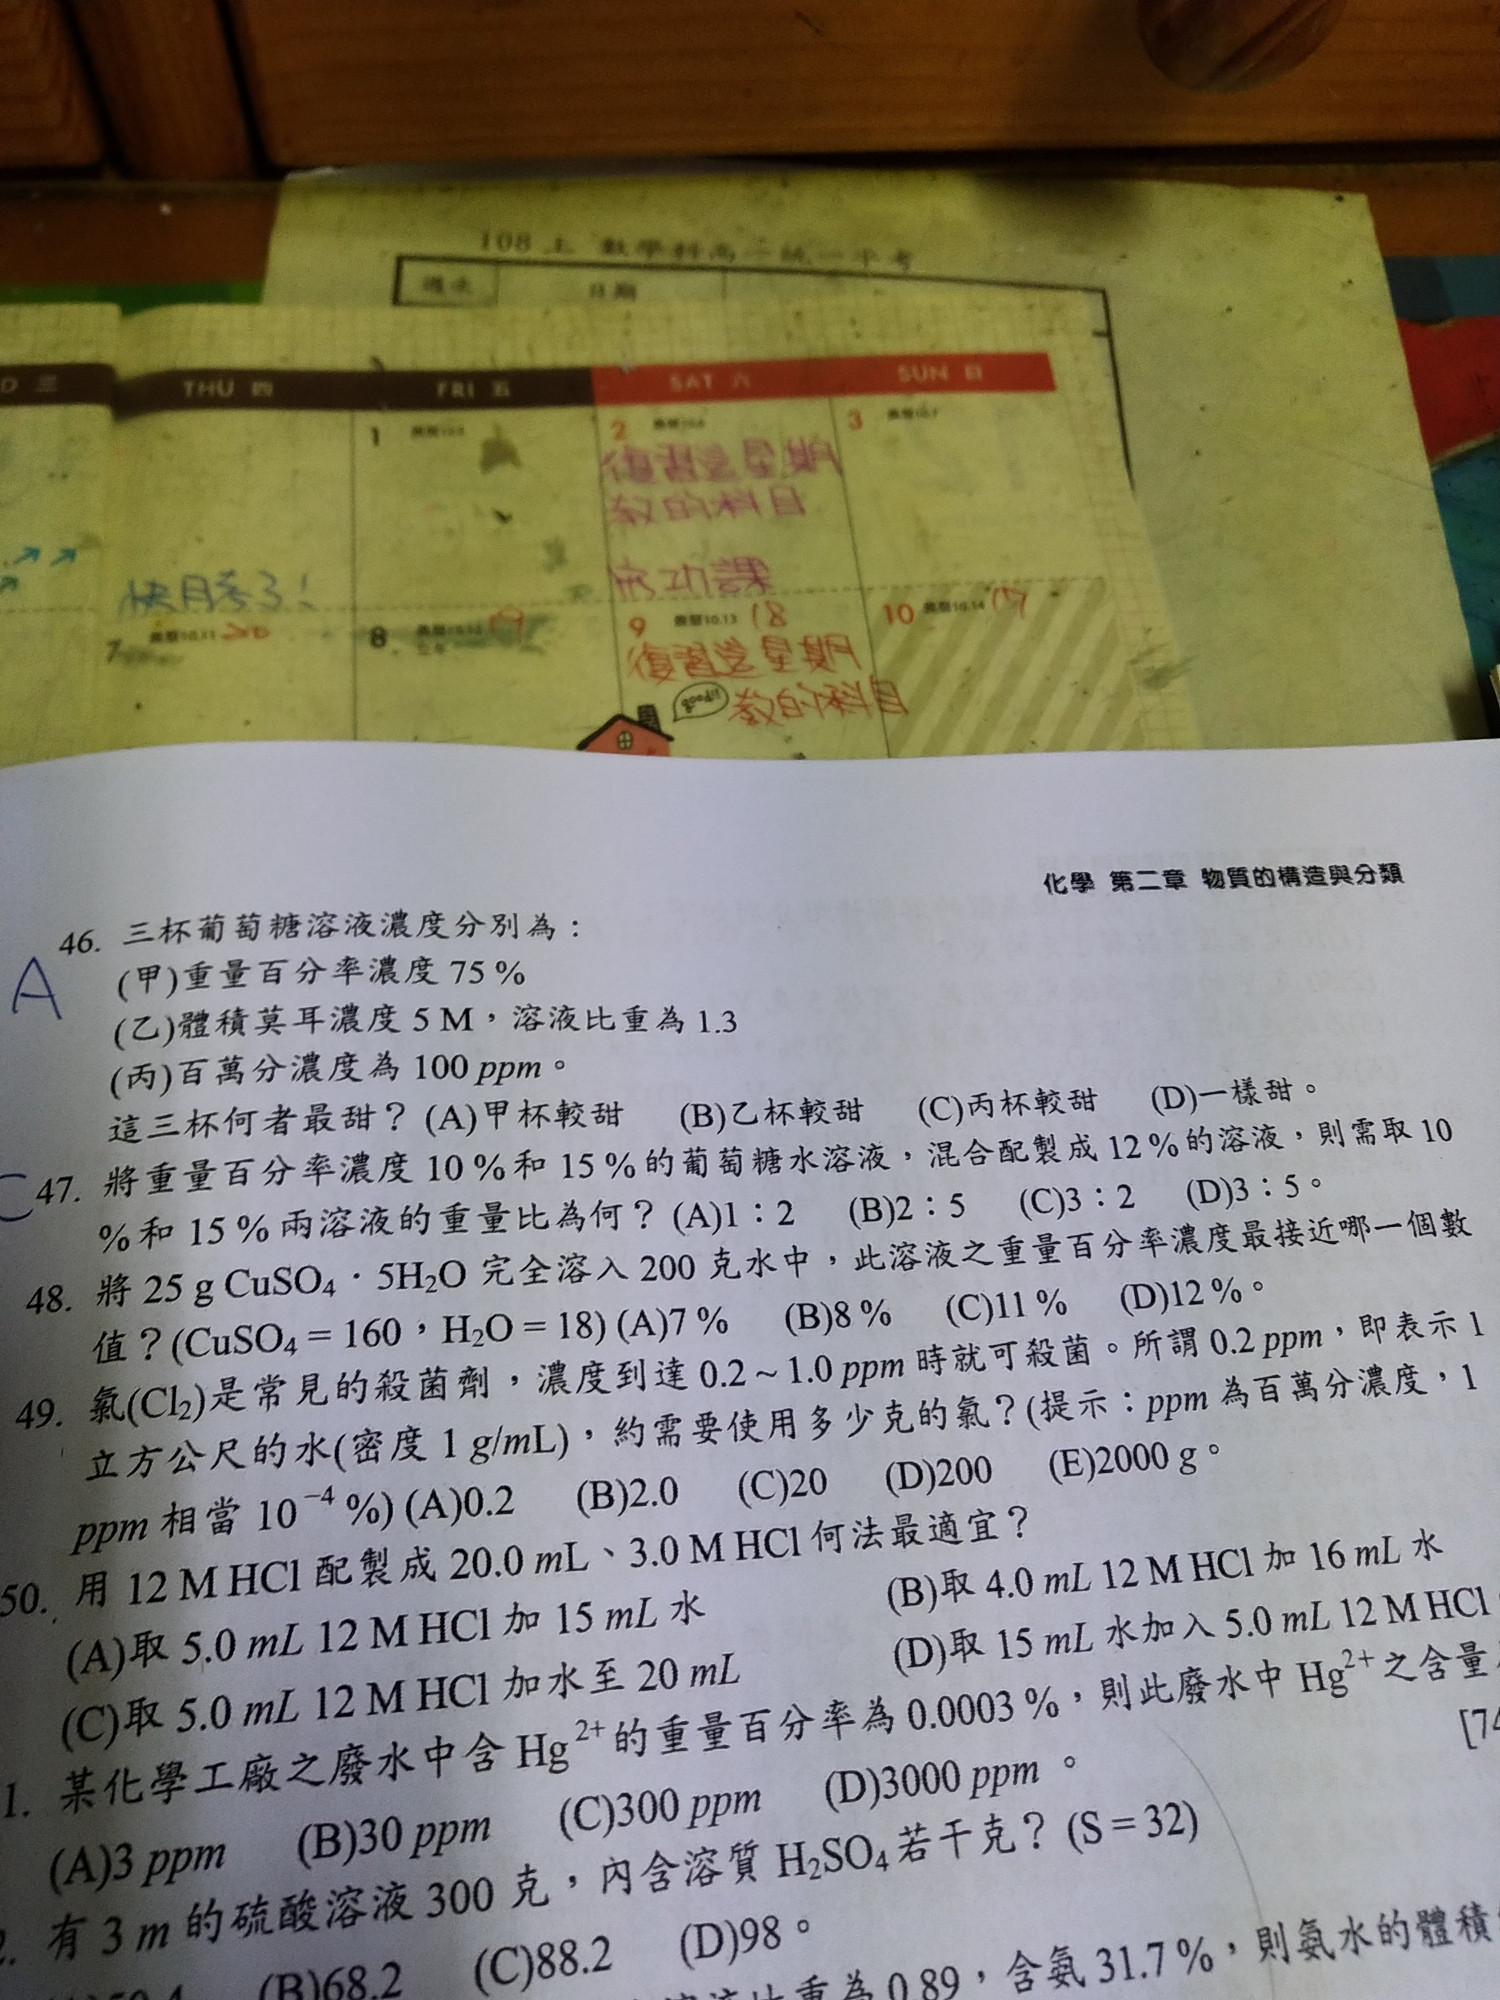 108 上 數學科高一統一平考
週次 日期
D 三 THU 四 FRI 五 SAT 六 SUN 日
1 2 3
復習這星期
教的科目
成功課
快月考了!
7 農曆10.11 20 8 19 9 農曆10.13 18 10 農曆10.14 17
復習這星期
教的科目
化學 第二章 物質的構造與分類
A
46. 三杯葡萄糖溶液濃度分別為：
(甲)重量百分率濃度 75 %
(乙)體積莫耳濃度 5 M，溶液比重為 1.3
(丙)百萬分濃度為 100 ppm。
這三杯何者最甜？ (A)甲杯較甜 (B)乙杯較甜 (C)丙杯較甜 (D)一樣甜。
C
47. 將重量百分率濃度 10 %和 15 %的葡萄糖水溶液，混合配製成 12 %的溶液，則需取 10
%和 15 %兩溶液的重量比為何？ (A)1：2 (B)2：5 (C)3：2 (D)3：5。
48. 將 25 g CuSO₄．5H₂O 完全溶入 200 克水中，此溶液之重量百分率濃度最接近哪一個數
值？(CuSO₄ = 160，H₂O = 18) (A)7 % (B)8 % (C)11 % (D)12 %。
49. 氯(Cl₂)是常見的殺菌劑，濃度到達 0.2 ~ 1.0 ppm 時就可殺菌。所謂 0.2 ppm，即表示 1
立方公尺的水(密度 1 g/mL)，約需要使用多少克的氯？(提示：ppm 為百萬分濃度，1
ppm 相當 10⁻⁴ %) (A)0.2 (B)2.0 (C)20 (D)200 (E)2000 g。
50. 用 12 M HCl 配製成 20.0 mL、3.0 M HCl 何法最適宜？
(A)取 5.0 mL 12 M HCl 加 15 mL 水 (B)取 4.0 mL 12 M HCl 加 16 mL 水
(C)取 5.0 mL 12 M HCl 加水至 20 mL (D)取 15 mL 水加入 5.0 mL 12 M HCl
1. 某化學工廠之廢水中含 Hg²⁺的重量百分率為 0.0003 %，則此廢水中 Hg²⁺之含量
[74
(A)3 ppm (B)30 ppm (C)300 ppm (D)3000 ppm 。
2. 有 3 m 的硫酸溶液 300 克，內含溶質 H₂SO₄若干克？ (S = 32)
(B)68.2 (C)88.2 (D)98。
比重為 0.89，含氨 31.7 %，則氨水的體積